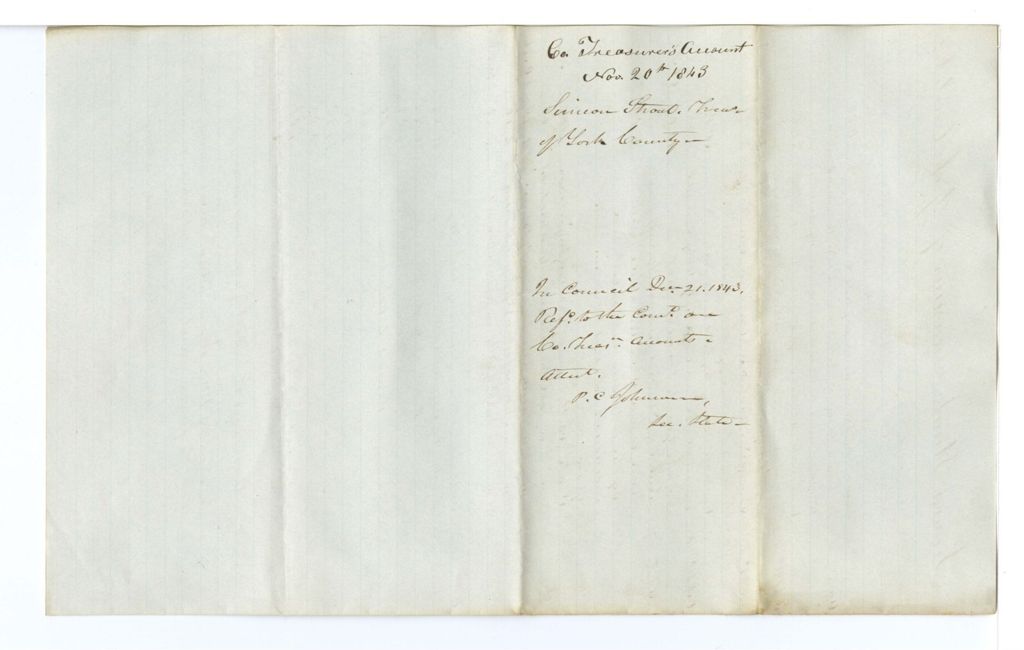 Co. Treasurer's Account
Nov. 20th 1843
Simeon Strout, Treasr
of York County
In Council Decr 21. 1843.
Refd. to the Comte. on
Co. Treasr. accounts
Attest.
P. C. Johnson,
Sec. State